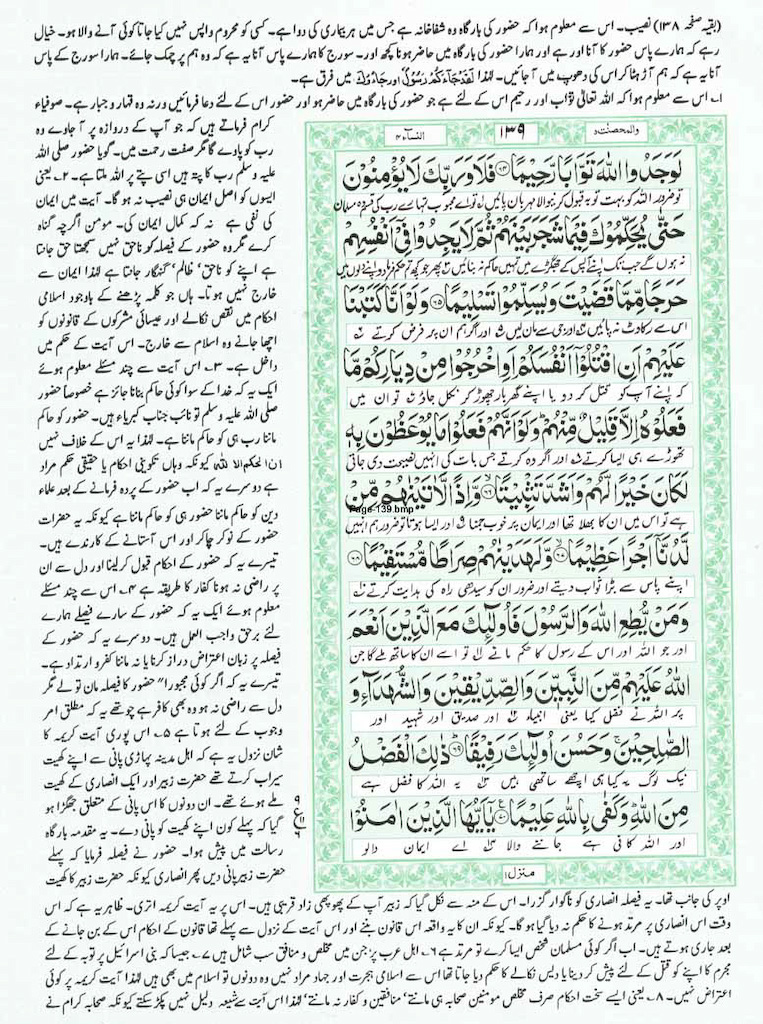 (بقیہ صفحہ ۱۳۸) نصیب۔ اس سے معلوم ہوا کہ حضور کی بارگاہ وہ شفاخانہ ہے جس میں ہر بیماری کی دوا ہے۔ کسی کو محروم واپس نہیں کیا جاتا کوئی آنے والا ہو۔ خیال
رہے کہ ہمارے پاس حضور کا آنا اور ہے اور ہمارا حضور کی بارگاہ میں حاضر ہونا کچھ اور۔ سورج کا ہمارے پاس آنا یہ ہے کہ وہ ہم پر چمک جائے۔ ہمارا سورج کے پاس
آنا یہ ہے کہ ہم آڑ ہٹا کر اس کی دھوپ میں آ جائیں۔ لہٰذا لَقَدْ جَآءَكُمْ رَسُوْلٌ اور جَآءُوْكَ میں فرق ہے۔
۱۔ اس سے معلوم ہوا کہ اللہ تعالٰی تواب اور رحیم اس کے لئے ہے جو حضور کی بارگاہ میں حاضر ہو اور حضور اس کے لئے دعا فرمائیں ورنہ وہ قہار و جبار ہے۔ صوفیاء
والمحصنت ۵
۱۳۹
النسآء ۴
لَوَجَدُوا اللّٰهَ تَوَّابًا رَّحِيْمًا ﴿۶۴﴾ فَلَا وَرَبِّكَ لَا يُؤْمِنُوْنَ
تو ضرور اللہ کو بہت توبہ قبول کرنیوالا مہربان پائیں تو اے محبوب تمہارے رب کی قسم وہ مسلمان
حَتّٰى يُحَكِّمُوْكَ فِيْمَا شَجَرَ بَيْنَهُمْ ثُمَّ لَا يَجِدُوْا فِيْٓ اَنْفُسِهِمْ
نہ ہوں گے جب تک اپنے آپس کے جھگڑے میں تمہیں حاکم نہ بنائیں پھر جو کچھ تم حکم فرما دو اپنے دلوں میں
حَرَجًا مِّمَّا قَضَيْتَ وَيُسَلِّمُوْا تَسْلِيْمًا ﴿۶۵﴾ وَلَوْ اَنَّا كَتَبْنَا
اس سے رکاوٹ نہ پائیں اور جی سے مان لیں اور اگر ہم ان پر فرض کرتے
عَلَيْهِمْ اَنِ اقْتُلُوْٓا اَنْفُسَكُمْ اَوِ اخْرُجُوْا مِنْ دِيَارِكُمْ مَّا
کہ اپنے آپ کو قتل کر دو یا اپنے گھر بار چھوڑ کر نکل جاؤ تو ان میں
فَعَلُوْهُ اِلَّا قَلِيْلٌ مِّنْهُمْ وَلَوْ اَنَّهُمْ فَعَلُوْا مَا يُوْعَظُوْنَ بِهٖ
تھوڑے ہی ایسا کرتے اور اگر وہ کرتے جس بات کی انہیں نصیحت دی جاتی
لَكَانَ خَيْرًا لَّهُمْ وَاَشَدَّ تَثْبِيْتًا ﴿۶۶﴾ وَّاِذًا لَّاٰتَيْنٰهُمْ مِّنْ
Page-139.bmp
ہے تو اس میں ان کا بھلا تھا اور ایمان پر خوب جمنا اور ایسا ہوتا تو ضرور ہم انہیں
لَّدُنَّآ اَجْرًا عَظِيْمًا ﴿۶۷﴾ وَّلَهَدَيْنٰهُمْ صِرَاطًا مُّسْتَقِيْمًا ﴿۶۸﴾
اپنے پاس سے بڑا ثواب دیتے اور ضرور ان کو سیدھی راہ کی ہدایت کرتے
وَمَنْ يُّطِعِ اللّٰهَ وَالرَّسُوْلَ فَاُولٰٓئِكَ مَعَ الَّذِيْنَ اَنْعَمَ
اور جو اللہ اور اس کے رسول کا حکم مانے تو اسے ان کا ساتھ ملے گا جن
اللّٰهُ عَلَيْهِمْ مِّنَ النَّبِيّٖنَ وَالصِّدِّيْقِيْنَ وَالشُّهَدَآءِ وَ
پر اللہ نے فضل کیا یعنی انبیاء اور صدیق اور شہید اور
الصّٰلِحِيْنَ وَحَسُنَ اُولٰٓئِكَ رَفِيْقًا ﴿۶۹﴾ ذٰلِكَ الْفَضْلُ
نیک لوگ یہ کیا ہی اچھے ساتھی ہیں یہ اللہ کا فضل ہے
مِنَ اللّٰهِ وَكَفٰى بِاللّٰهِ عَلِيْمًا ﴿۷۰﴾ يٰٓاَيُّهَا الَّذِيْنَ اٰمَنُوْا
اور اللہ کافی ہے جاننے والا اے ایمان والو
منزل ۱
کرام فرماتے ہیں کہ جو آپ کے دروازہ پر آ جاوے وہ
رب کو پاوے گا مگر صفت رحمت میں۔ گویا حضور صلی اللہ
علیہ وسلم رب کا پتہ ہیں اسی پتے پر اللہ ملتا ہے۔ ۲۔ یعنی
ایسوں کو اصل ایمان ہی نصیب نہ ہو گا۔ آیت میں ایمان
کی نفی ہے نہ کہ کمال ایمان کی۔ مومن اگرچہ گناہ
کرے مگر وہ حضور کے فیصلہ کو ناحق نہیں سمجھتا حق جانتا
ہے اپنے کو ناحق، ظالم، گنہگار جانتا ہے لہٰذا ایمان سے
خارج نہیں ہوتا۔ ہاں جو کلمہ پڑھنے کے باوجود اسلامی
احکام میں نقص نکالے اور عیسائی مشرکوں کے قانونوں کو
اچھا جانے وہ اسلام سے خارج۔ اس آیت کے حکم میں
داخل ہے۔ ۳۔ اس آیت سے چند مسئلے معلوم ہوئے
ایک یہ کہ خدا کے سوا کوئی حاکم بنانا جائز ہے خصوصاً حضور
صلی اللہ علیہ وسلم تو نائب جناب کبریاء ہیں۔ حضور کو حاکم
ماننا رب ہی کو حاکم ماننا ہے۔ لہٰذا یہ اس کے خلاف نہیں
ان الحکم الا للہ کیونکہ وہاں تکوینی احکام یا حقیقی حکم مراد
ہے دوسرے یہ کہ اب حضور کے پردہ فرمانے کے بعد علماء
دین کو حاکم ماننا حضور ہی کو حاکم ماننا ہے کیونکہ یہ حضرات
حضور کے نوکر چاکر اور اس آستانے کے کارندے ہیں۔
تیسرے یہ کہ حضور کے احکام قبول کر لینا اور دل سے ان
پر راضی نہ ہونا کفار کا طریقہ ہے ۴۔ اس سے چند مسئلے
معلوم ہوئے ایک یہ کہ حضور کے سارے فیصلے ہمارے
لئے برحق واجب العمل ہیں۔ دوسرے یہ کہ حضور کے
فیصلہ پر زبان اعتراض دراز کرنا یا نہ ماننا کفر و ارتداد ہے۔
تیسرے یہ کہ اگر کوئی مجبورا" حضور کا فیصلہ مان تو لے مگر
دل سے راضی نہ ہو وہ بھی کافر ہے چوتھے یہ کہ مطلق امر
وجوب کے لئے ہوتا ہے ۵۔ اس پوری آیت کریمہ کا
شان نزول یہ ہے کہ اہل مدینہ پہاڑی پانی سے اپنے کھیت
سیراب کرتے تھے حضرت زبیر اور ایک انصاری کے کھیت
ملے ہوئے تھے۔ ان دونوں کا اس پانی کے متعلق جھگڑا ہو
گیا کہ پہلے کون اپنے کھیت کو پانی دے۔ یہ مقدمہ بارگاہ
رسالت میں پیش ہوا۔ حضور نے فیصلہ فرمایا کہ پہلے
حضرت زبیر پانی دیں پھر انصاری کیونکہ حضرت زبیر کا کھیت
اوپر کی جانب تھا۔ یہ فیصلہ انصاری کو ناگوار گزرا۔ اس کے منہ سے نکل گیا کہ زبیر آپ کے پھوپھی زاد قریبی ہیں۔ اس پر یہ آیت کریمہ اتری۔ ظاہر یہ ہے کہ اس
وقت اس انصاری پر مرتد ہونے کا حکم نہ دیا گیا ہو گا۔ کیونکہ ان کا یہ واقعہ اس قانون بننے اور اس آیت کے نزول سے پہلے تھا قانون کے احکام اس کے بن جانے کے
بعد جاری ہوتے ہیں۔ اب اگر کوئی مسلمان شخص ایسا کرے تو مرتد ہے ۶۔ اہل عرب پر جن میں مخلص و منافق سب شامل ہیں ۷۔ جیسا کہ بنی اسرائیل پر توبہ کے لئے
مجرم کا اپنے کو قتل کے لئے پیش کر دینا یا دیس نکالے کا حکم دیا جاتا تھا اس سے اسلامی ہجرت اور جہاد مراد نہیں وہ دونوں تو اسلام میں بھی ہیں لہٰذا آیت کریمہ پر کوئی
اعتراض نہیں۔ ۸۔ یعنی ایسے سخت احکام صرف مخلص مومنین صحابہ ہی مانتے، منافقین و کفار نہ مانتے، لہٰذا اس آیت سے شیعہ دلیل نہیں پکڑ سکتے کیونکہ صحابہ کرام نے